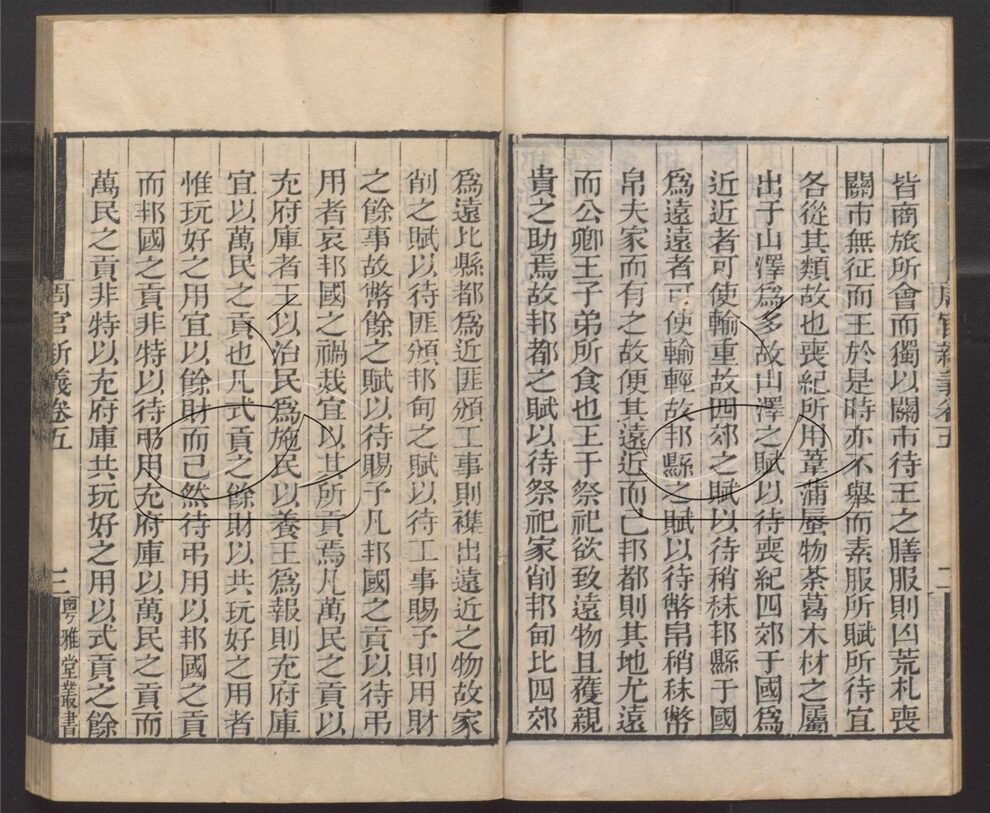 皆商旅所會而獨以關市待王之膳服則凶荒札喪
關市無征而王於是時亦不舉而素服所賦所待宜
各從其類故也喪紀所用葦蒲蜃物荼葛木材之屬
出于山澤爲多故山澤之賦以待喪紀四郊于國爲
近近者可使輸重故四郊之賦以待稍秣邦縣于國
爲遠遠者可使輸輕故邦縣之賦以待幣帛稍秣幣
帛夫家而有之故便其遠近而已邦都則其地尤遠
而公卿王子弟所食也王于祭祀欲致遠物且獲親
貴之助焉故邦都之賦以待祭祀家削邦甸比四郊
周官新義卷五
二
爲遠比縣都爲近匪頒工事則襍出遠近之物故家
削之賦以待匪頒邦甸之賦以待工事賜予則用財
之餘事故幣餘之賦以待賜予凡邦國之貢以待弔
用者哀邦國之禍烖宜以其所貢焉凡萬民之貢以
充府庫者王以治民爲施民以養王爲報則充府庫
宜以萬民之貢也凡式貢之餘財以共玩好之用者
惟玩好之用宜以餘財而已然待弔用以邦國之貢
而邦國之貢非特以待弔用充府庫以萬民之貢而
萬民之貢非特以充府庫共玩好之用以式貢之餘
周官新義卷五
三
粵雅堂叢書